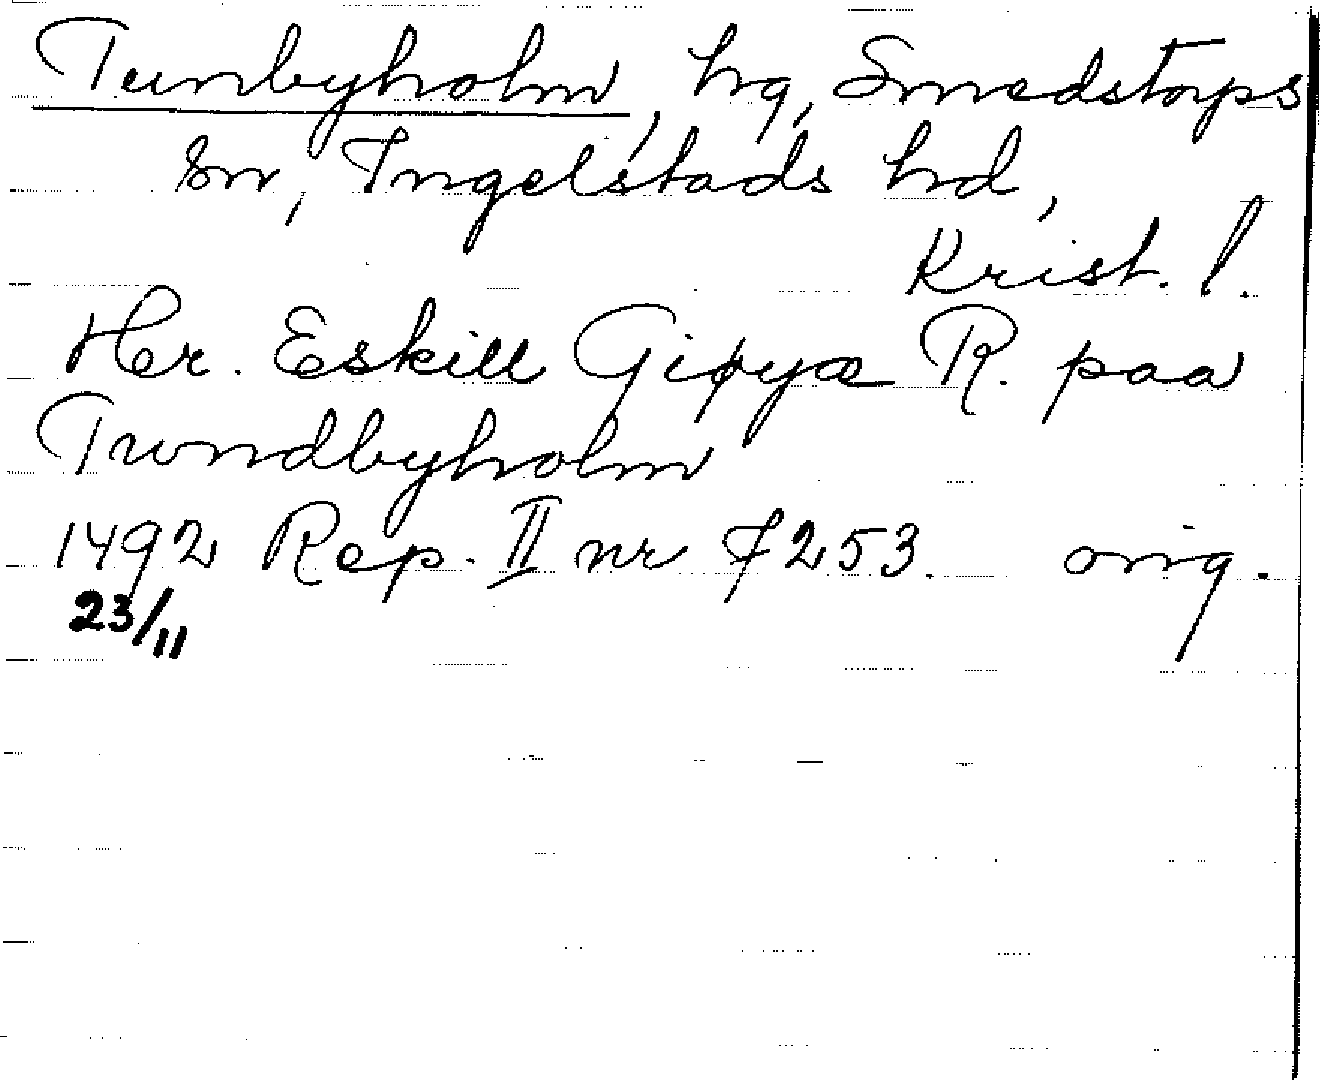 Tunbyholm, hg, Smedstorps
sn, Ingelstads hd,
Krist. l.
Her. Eskill Giøyæ R. paa
Trundbyholm
1492 Rep. II nr 7253. orig.
23/11